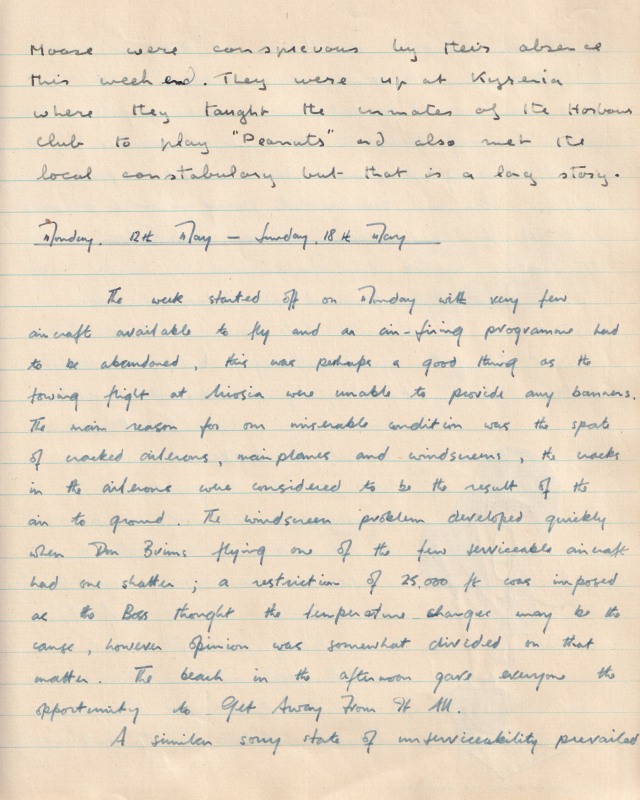 Moose were conspicuous by their absence
this weekend. They were up at Kyrenia
where they taught the inmates of the Harbour
Club to play "Peanuts" and also met the
local constabulary but that is a long story.
Monday. 12th May — Sunday. 18th May
The week started off on Monday with very few
aircraft available to fly and an air-firing programme had
to be abandoned, this was perhaps a good thing as the
towing flight at Nicosia were unable to provide any banners.
The main reason for our miserable condition was the spate
of cracked ailerons, mainplanes and windscreens, the cracks
in the ailerons were considered to be the result of the
air to ground. The windscreen problem developed quickly
when Don flying one of the few serviceable aircraft
had one shatter; a restriction of 25,000 ft was imposed
as the Boss thought the temperature changes may be the
cause, however opinion was somewhat divided on that
matter. The beach in the afternoon gave everyone the
opportunity to Get Away From It All.
A similar sorry state of unserviceability prevailed